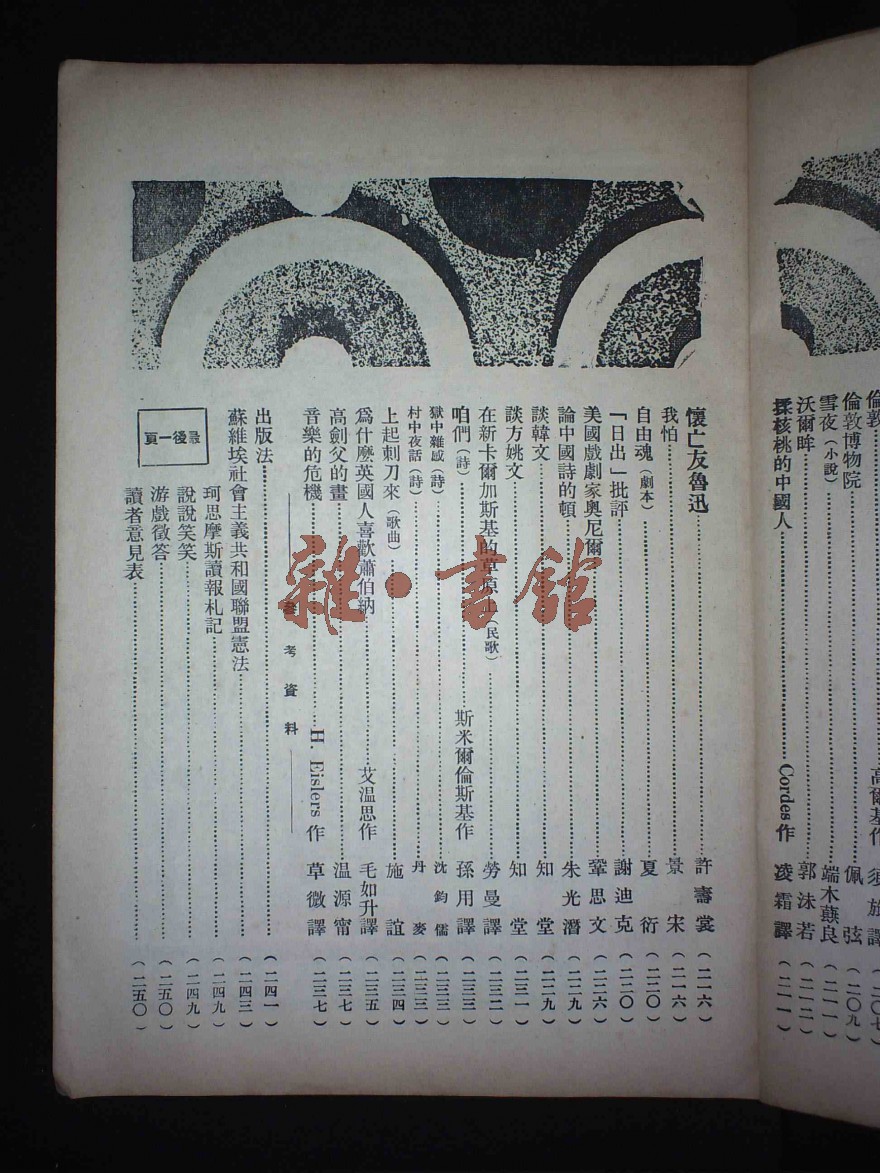 倫敦 高爾基作 須旅譯 （二〇七）
倫敦博物院 佩弦 （二〇九）
雪夜（小說） 端木蕻良 （二一一）
沃爾眸 郭沫若 （二一二）
揉核桃的中國人 Cordes作 凌霜譯 （二一一）
懷亡友魯迅 許壽裳 （二一六）
我怕 景宋 （二一六）
自由魂（劇本） 夏衍 （二二〇）
「日出」批評 謝迪克 （二二〇）
美國戲劇家奧尼爾 鞏思文 （二二六）
論中國詩的頓 朱光潛 （二二九）
談韓文 知堂 （二二九）
談方姚文 知堂 （二三一）
在新卡爾加斯基的草原上（民歌） 勞曼譯 （二三二）
咱們（詩） 斯米爾倫斯基作 孫用譯 （二三三）
獄中雜感（詩） 沈鈞儒 （二三三）
村中夜話（詩） 丹麥 （二三三）
上起刺刀來（歌曲） 施誼 （二三四）
爲什麼英國人喜歡蕭伯納 艾溫思作 毛如升譯 （二三五）
高劍父的畫 温源甯 （二三七）
音樂的危機 H. Eislers作 草微譯 （二三七）
參考資料
出版法 （二四一）
蘇維埃社會主義共和國聯盟憲法 （二四三）
珂思摩斯讀報札記 （二四九）
說說笑笑 （二四九）
游戲徵答 （二五〇）
讀者意見表 （二五〇）
最後一頁
雜·書館